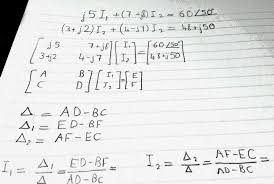 j5 I₁ + (7+j8) I₂ = 60∠50°
(3+j2) I₁ + (4-j7) I₂ = 48+j50
[j5 7+j8] [I₁] = [60∠50°]
[3+j2 4-j7] [I₂] [48+j50]
[A B] [I₁] = [E]
[C D] [I₂] [F]
Δ = AD-BC
Δ₁ = ED-BF
Δ₂ = AF-EC
I₁ = Δ₁/Δ = ED-BF/AD-BC = I₂ = Δ₂/Δ = AF-EC/AD-BC =